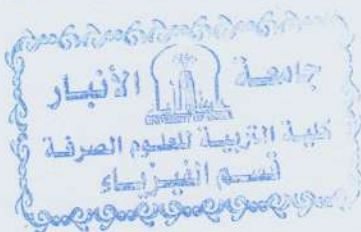 جامعة الأنبار
UNIVERSITY OF ANBAR
كلية التربية للعلوم الصرفة
قسم الفيزياء